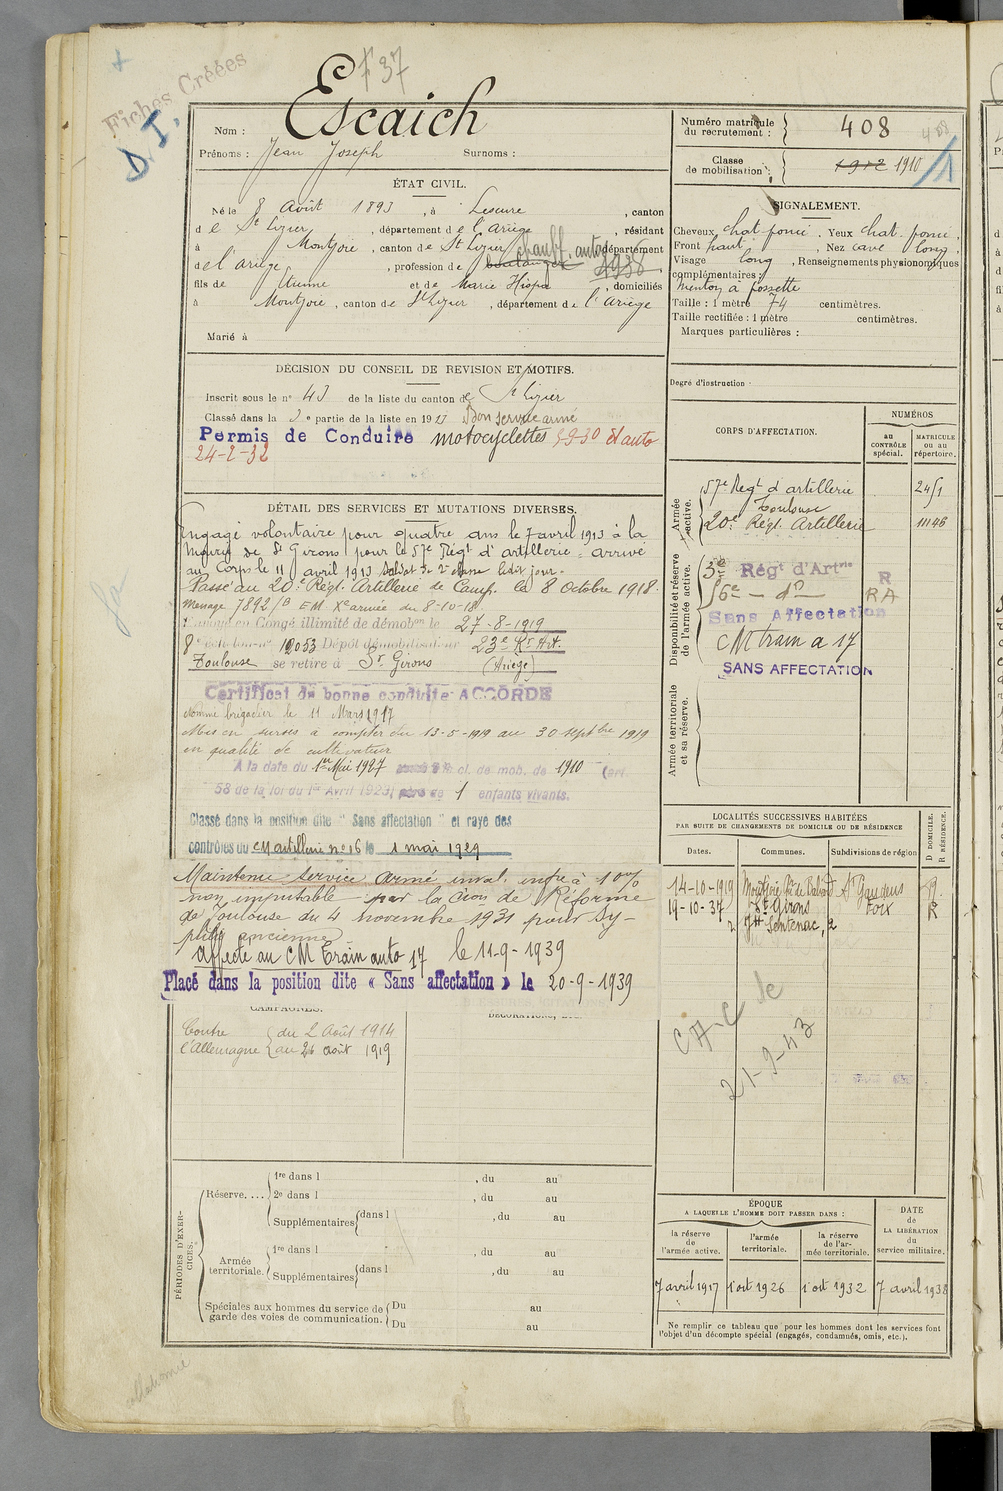 Fiches Créées
F 37
D I.
Nom : Escaich
Prénoms : Jean Joseph Surnoms :
Numéro matricule du recrutement : 408
408
Classe de mobilisation : 1912 1910
ÉTAT CIVIL.
Né le 8 Août 1893, à Lescure, canton
de St Lizier, département de l'Ariège, résidant
à Montjoie, canton de St Lizier, département
chauff. auto
de l'Ariège, profession de boulanger 1938
fils de et de Marie Hispa, domiciliés
à Montjoie, canton de St Lizier, département de l'Ariège
Marié à
SIGNALEMENT.
Cheveux chat. foncé. Yeux chat. foncé,
Front haut, Nez cave long
Visage long, Renseignements physionomiques
complémentaires :
Menton à fossette
Taille : 1 mètre 74 centimètres.
Taille rectifiée : 1 mètre centimètres.
Marques particulières :
Degré d'instruction
DÉCISION DU CONSEIL DE REVISION ET MOTIFS.
Inscrit sous le n° 43 de la liste du canton de St Lizier
Classé dans la 3e partie de la liste en 1913 Bon service armé
Permis de Conduire motocyclettes 5-9-30 et auto
24-2-32
DÉTAIL DES SERVICES ET MUTATIONS DIVERSES.
Engagé volontaire pour quatre ans le 7 avril 1913 à la
Mairie de St Girons pour le 57e Régt d'artillerie - arrivé
au Corps le 11 avril 1913 soldat de 2e classe ledit jour -
Passé au 20e Régt. Artillerie de Camp. le 8 Octobre 1918.
Message 7892/B EM. Xe armée du 8-10-18.
Envoyé en Congé illimité de démobon le 27-8-1919
8e échelon n° 12053 Dépôt démobilisateur 23e Rt Art.
Toulouse se retire à St Girons (Ariège)
Certificat de bonne conduite ACCORDÉ
Nommé brigadier le 11 Mars 1917
Mis en sursis à compter du 13-5-1919 au 30 Septbre 1919
en qualité de cultivateur
A la date du 1er Mai 1927 cl. de mob. de 1910 (art.
58 de la loi du 1er Avril 1923) père de 1 enfants vivants.
Classé dans la position dite " Sans affectation " et rayé des
contrôles du CM artillerie n° 16 le 1 mai 1929
Maintenu service armé inval. infre à 10%
non imputable par la Cion de Réforme
de Toulouse du 4 novembre 1931 pour Sy-
philis ancienne
Affecté au CM Train auto 17 le 11-9-1939
Placé dans la position dite « Sans affectation » le 20-9-1939
CAMPAGNES.
DÉCORATIONS,
Contre l'Allemagne
du 2 Août 1914
au 26 août 1919
CORPS D'AFFECTATION.
NUMÉROS
au CONTRÔLE spécial.
MATRICULE ou au répertoire.
Armée active.
57e Régt d'artillerie 2451
Toulouse
20e Régt. Artillerie 11146
Disponibilité et réserve de l'armée active.
3e Régt d'Artrie R
56e - do RA
Sans Affectation
CM train a 17
SANS AFFECTATION
Armée territoriale et sa réserve.
LOCALITÉS SUCCESSIVES HABITÉES
PAR SUITE DE CHANGEMENTS DE DOMICILE OU DE RÉSIDENCE
Dates. Communes. Subdivisions de région D DOMICILE. R RÉSIDENCE.
14-10-1919 St Gaudens
19-10-37 St Girons Foix R
Sentenac, 2
21-9-43
PÉRIODES D'EXERCICES.
Réserve....
1re dans l , du au
2e dans l , du au
Supplémentaires dans l , du au
Armée territoriale.
1re dans l , du au
Supplémentaires dans l , du au
Spéciales aux hommes du service de garde des voies de communication.
Du au
Du au
ÉPOQUE
A LAQUELLE L'HOMME DOIT PASSER DANS :
la réserve de l'armée active.
l'armée territoriale.
la réserve de l'armée territoriale.
DATE de LA LIBÉRATION du service militaire.
7 avril 1917 1 oct 1926 1 oct 1932 7 avril 1938
Ne remplir ce tableau que pour les hommes dont les services font
l'objet d'un décompte spécial (engagés, condamnés, omis, etc.).